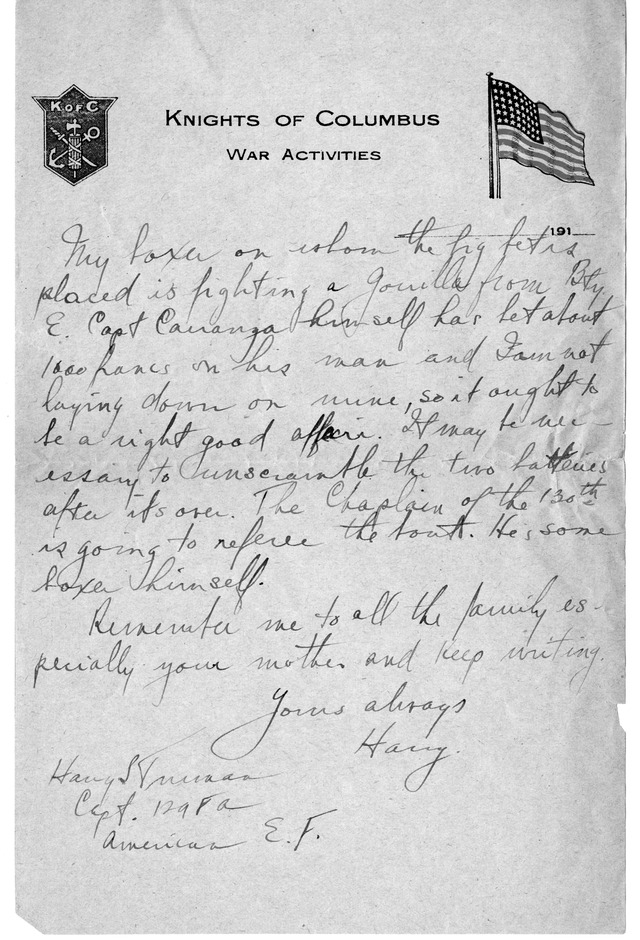 K of C
KNIGHTS OF COLUMBUS
WAR ACTIVITIES
191
My boxer on whom the big bet is
placed is fighting a Gorilla from Bty
E. Capt Carranga himself has bet about
1000 francs on his man and I am not
laying down on mine, so it ought to
be a right good affair. It may be nec-
essary to unscramble the two batteries
after its over. The Chaplain of the 130th
is going to referee the bout. He is some
boxer himself.
Remember me to all the family es-
pecially your mother and keep writing.
Yours always
Harry.
Harry S Truman
Capt. 129 F a
American E. F.